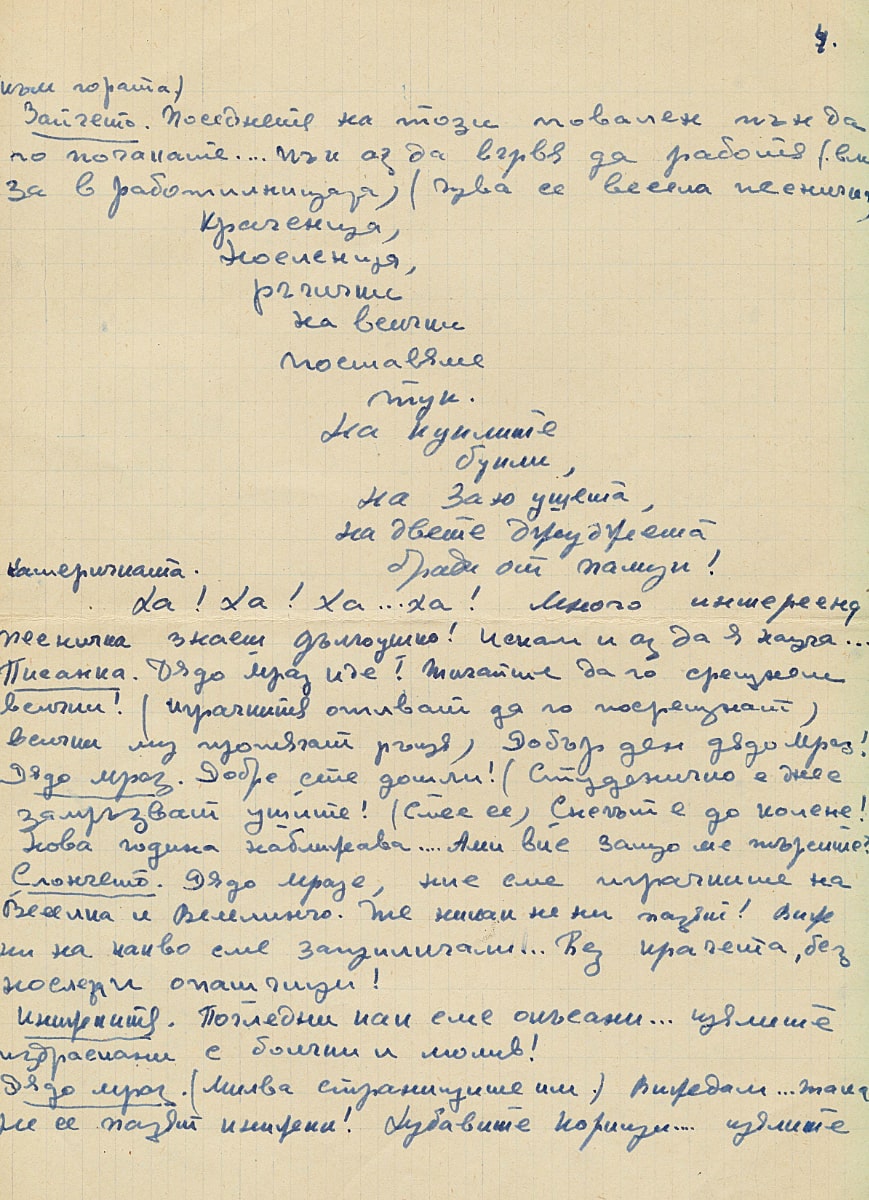 4.
към гората)
Зайчето. Поседнете на този повален пън да
го почакате.... Пък аз да вървя да работя (вли
за в работилницата) (Чува се весела песничка)
Краченца,
Носленца,
ръчички
на всички
поставяме
тук.
На куклите
букли,
на Заю ушета,
на двете джуджета
бради от памук!
Катеричката.
Ха! Ха! Ха...ха! Много интересна
песничка знаеш дългоушко! Искам и аз да я науча...
Писанка. Дядо Мраз иде! Тичайте да го срещнем
всички! (играчките отиват да го посрещнат,
всички му протягат ръце) Добър ден дядо Мраз!
Дядо Мраз. Добре сте дошли! (Студеничко е днес
замръзват ушите! (Смее се) Снегът е до колене!
Нова година наближава.... Ами вие защо ме търсите?
Слончето. Дядо Мразе, ние сме играчките на
Веселка и Велиминчо. Те никак не ни пазят! Виж
ни на какво сме заприличали... Без крачета, без
носле, и опашчици!
Книжките. Погледни как сме окъсани... целите
издраскани с боички и молив!
Дядо Мраз. (Милва страниците им.) Виждам...така
не се пазят книжки! Хубавите корици.... целите